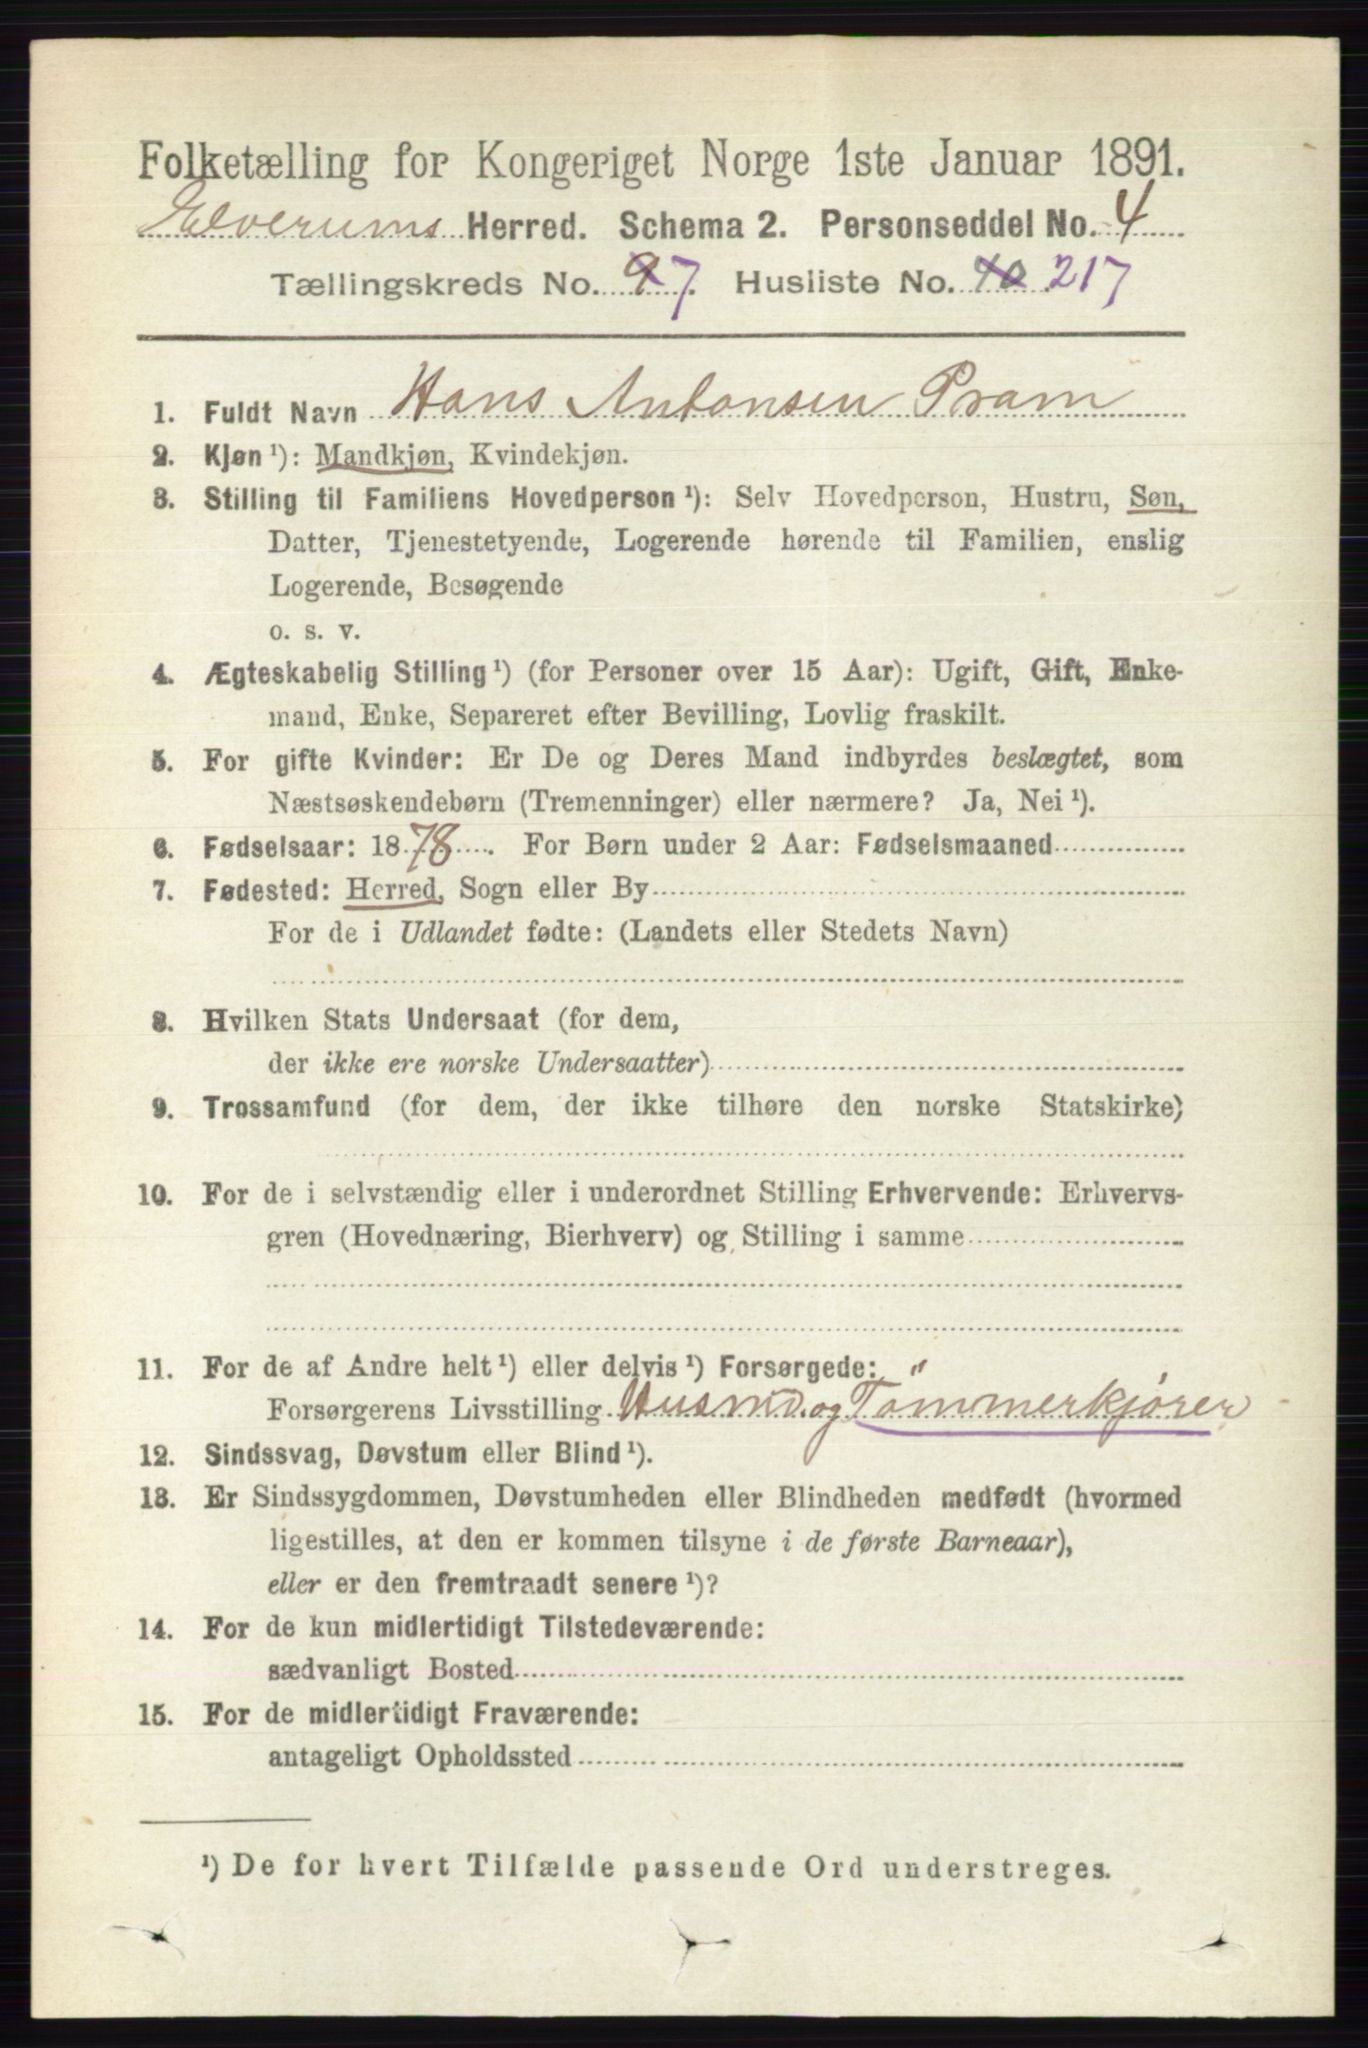 Folketælling for Kongeriget Norge 1ste Januar 1891.
Elverums Herred. Schema 2. Personseddel No. 4
Tællingskreds No. 9 7. Husliste No. 10 217
1. Fuldt Navn Hans Antonsen Pram
2. Kjøn ¹): Mandkjøn, Kvindekjøn.
3. Stilling til Familiens Hovedperson ¹): Selv Hovedperson, Hustru, Søn,
Datter, Tjenestetyende, Logerende hørende til Familien, enslig
Logerende, Besøgende
o. s. v.
4. Ægteskabelig Stilling ¹) (for Personer over 15 Aar): Ugift, Gift, Enke-
mand, Enke, Separeret efter Bevilling, Lovlig fraskilt.
5. For gifte Kvinder: Er De og Deres Mand indbyrdes beslægtet, som
Næstsøskendebørn (Tremenninger) eller nærmere? Ja, Nei ¹).
6. Fødselsaar: 1878. For Børn under 2 Aar: Fødselsmaaned
7. Fødested: Herred, Sogn eller By
For de i Udlandet fødte: (Landets eller Stedets Navn)
8. Hvilken Stats Undersaat (for dem,
der ikke ere norske Undersaatter)
9. Trossamfund (for dem, der ikke tilhøre den norske Statskirke)
10. For de i selvstændig eller i underordnet Stilling Erhvervende: Erhvervs-
gren (Hovednæring, Bierhverv) og Stilling i samme
11. For de af Andre helt ¹) eller delvis ¹) Forsørgede:
Forsørgerens Livsstilling Husmd. og Tömmerkjører
12. Sindssvag, Døvstum eller Blind ¹).
13. Er Sindssygdommen, Døvstumheden eller Blindheden medfødt (hvormed
ligestilles, at den er kommen tilsyne i de første Barneaar),
eller er den fremtraadt senere ¹)?
14. For de kun midlertidigt Tilstedeværende:
sædvanligt Bosted
15. For de midlertidigt Fraværende:
antageligt Opholdssted
¹) De for hvert Tilfælde passende Ord understreges.